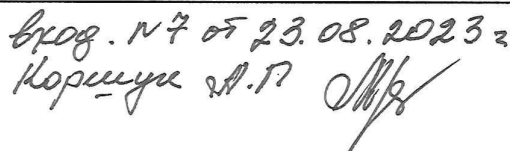 вход. №7 от 23.08.2023 г
Коршук А.П